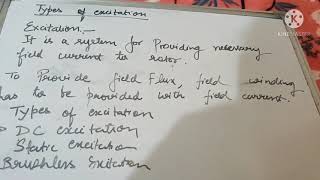 Types of excitation
Excitation:—
It is a system for Providing necessary
field current to rotor.
To Provide field Flux, field winding
has to be provided with field current.
Types of excitation
DC excitation
Static excitation
Brushless Excitation